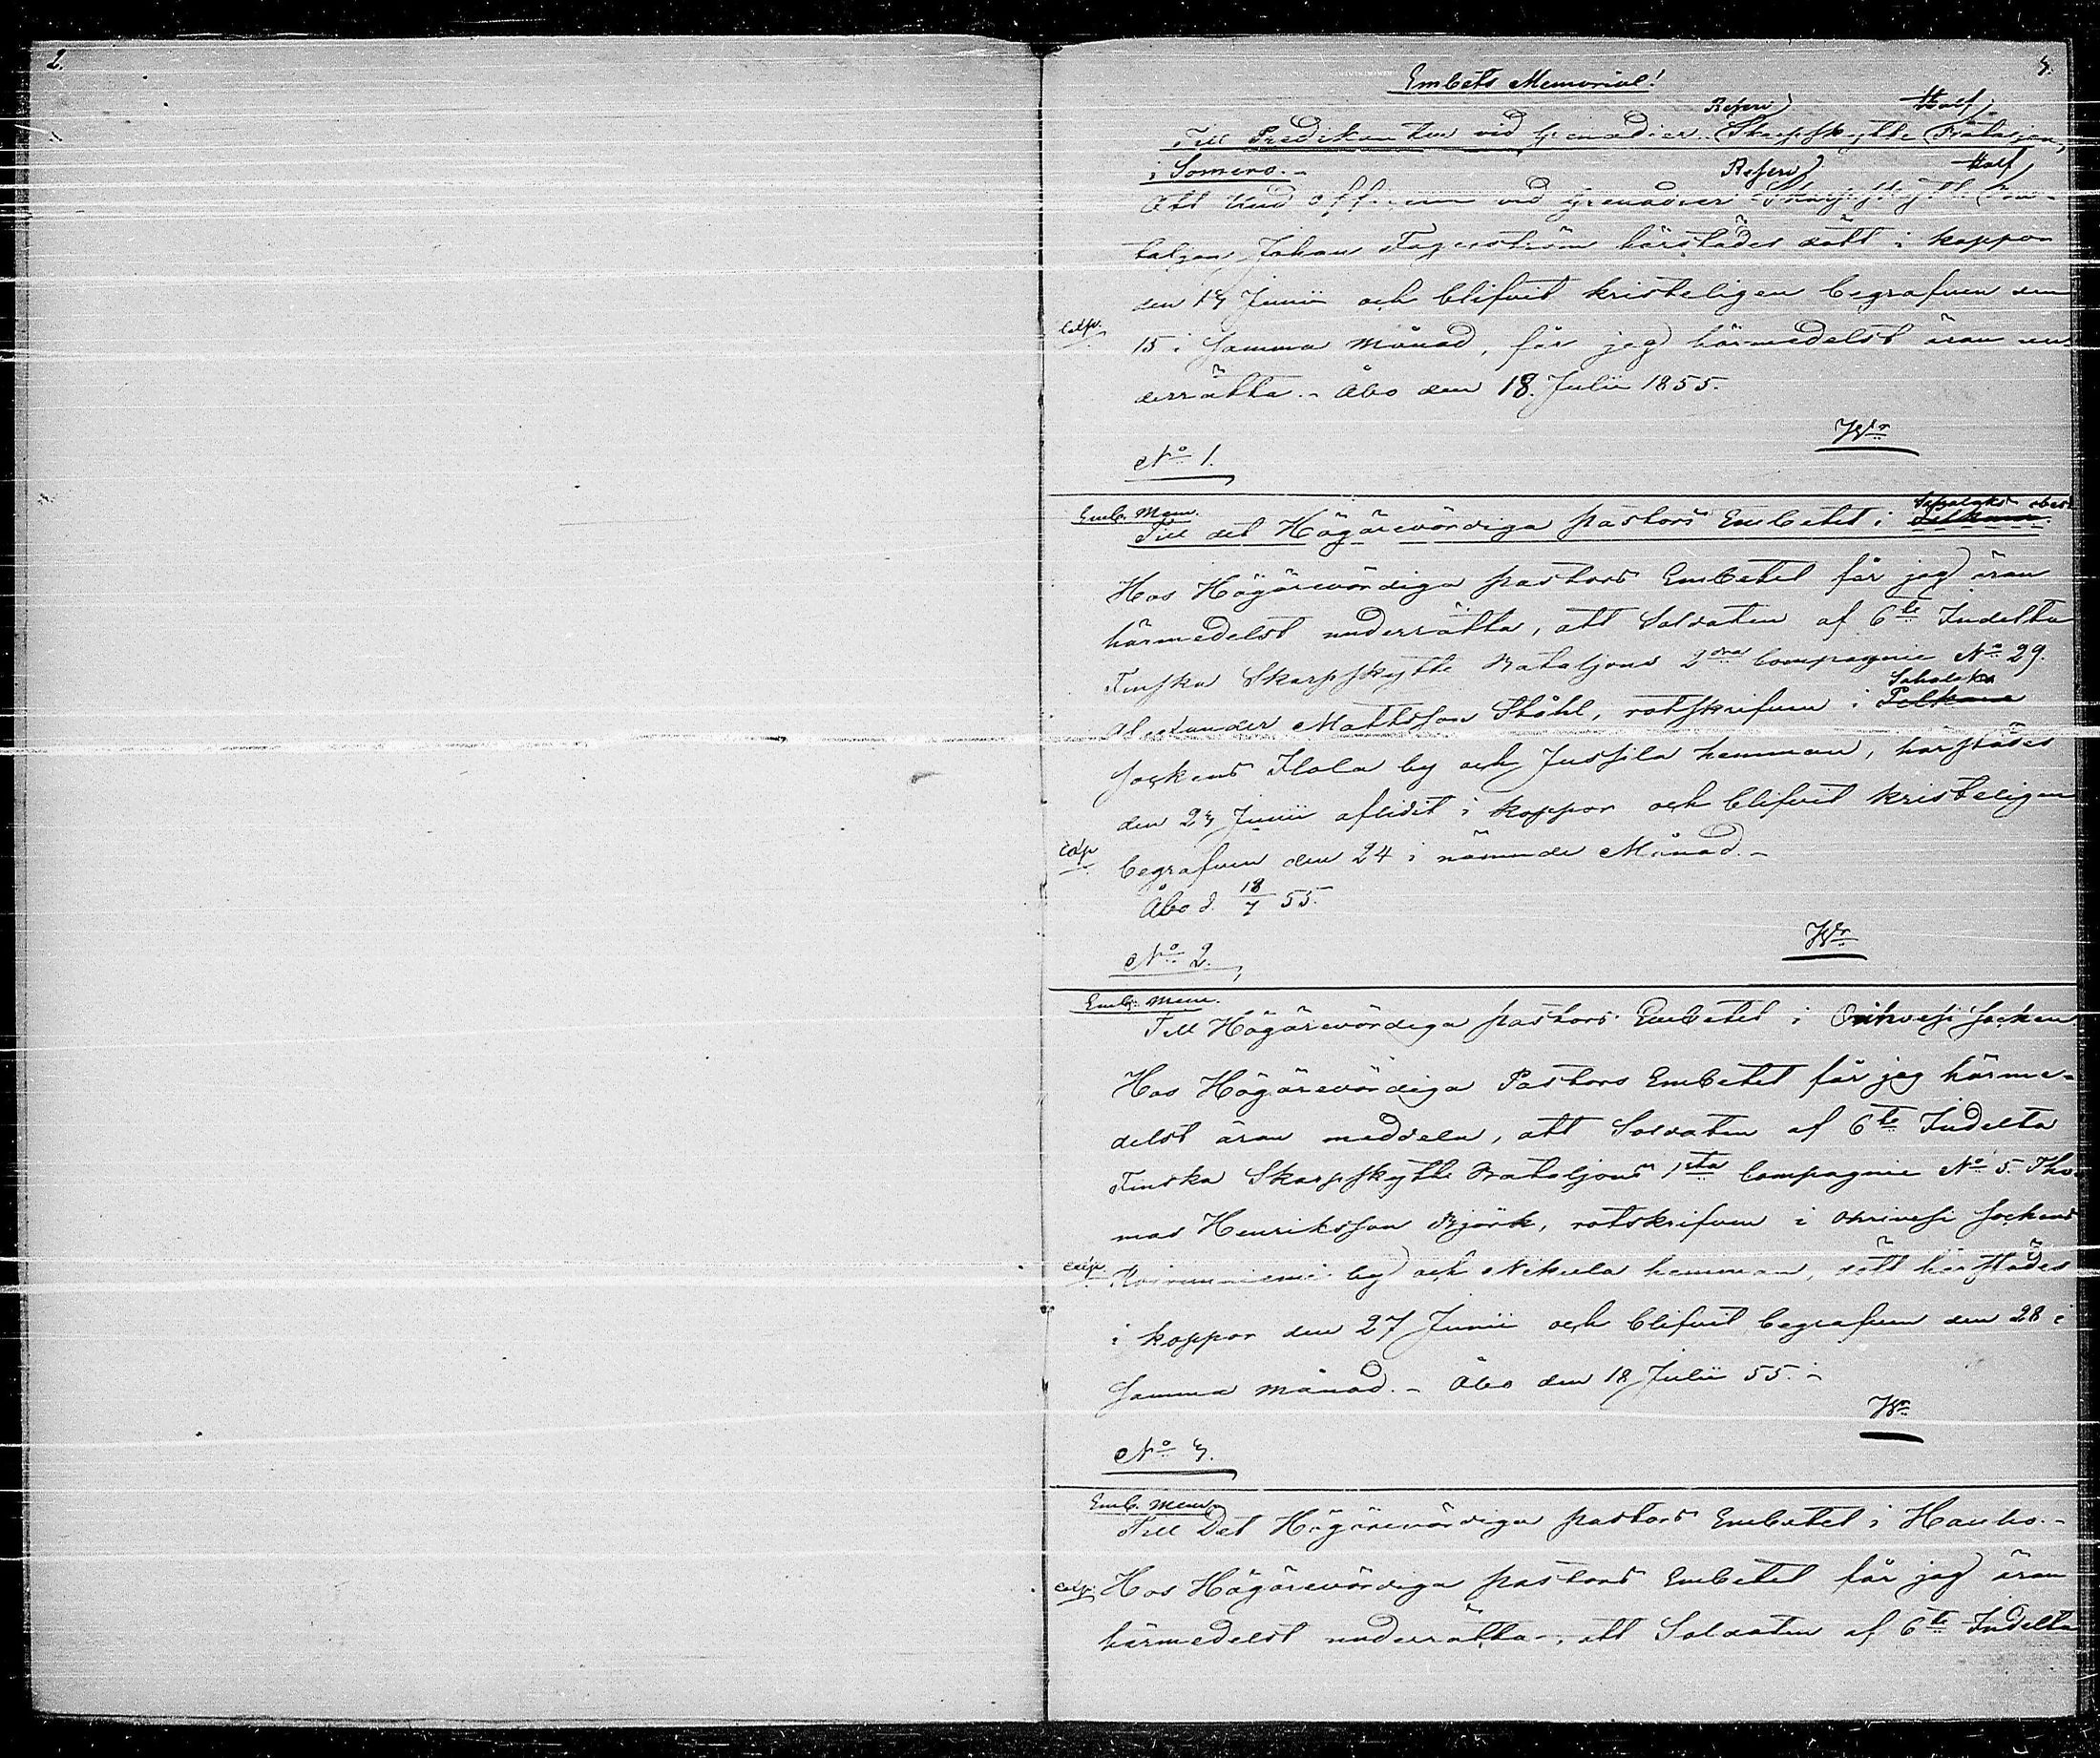 2.
3.
Embets Memorial!
Reserv Half
Till Predikanten vid Grenadier Skarpskytte Bataljon,
i Somero.-
Reserv Half
Att Und officeren vid Grenadier Skarpskytte Ba-
taljon Johan Fagerström härstädes dött i koppor
den 13 Junii och blifvit kristeligen begrafven den
Exp.
15 i samma månad, får jag härmedelst äran un-
derrätta.- Åbo den 18. Julii 1855.
Wr
No 1.
Emb. Mem.
Till det Högärevördiga Pastors Embetet i
Hos Högärevördiga Pastors Embetet får jag äran
härmedelst underrätta, att Soldaten af 6te Indelta
Finska Skarpskytte Bataljons 2dra Compagnie No 29.
Alexander Mattsson Ståhl, rotskrifven i Pelkane
Sockens Ilola by och Jussila hemman, härstädes
den 23 Junii aflidit i koppor och blifvit kristeligen
Exp
begrafven den 24 i nämnde Månad.-
Åbo d. 18/7 55.
Wr
No 2.
Emb. Mem.
Till Högärevördiga Pastors Embetet i Orihvesi Socken
Hos Högärevördiga Pastors Embetet får jag härme-
delst äran meddela, att Soldaten af 6te Indelta
Finska Skarpskytte Bataljons 1sta Compagnie No 5. Tho-
mas Henriksson Björk, rotskrifven i Orivesi Sockens
Exp.
by och Nikula hemman, dött härstädes
i koppor den 27 Junii och blifvit begrafven den 28 i
samma månad.- Åbo den 18 Julii 55.-
Wr
No 3.
Emb. Mem.
Till Det Högärevördiga Pastors Embetet i Hauho.-
Exp.
Hos Högärevördiga Pastors Embetet får jag äran
härmedelst underrätta, att Soldaten af 6te Indelta